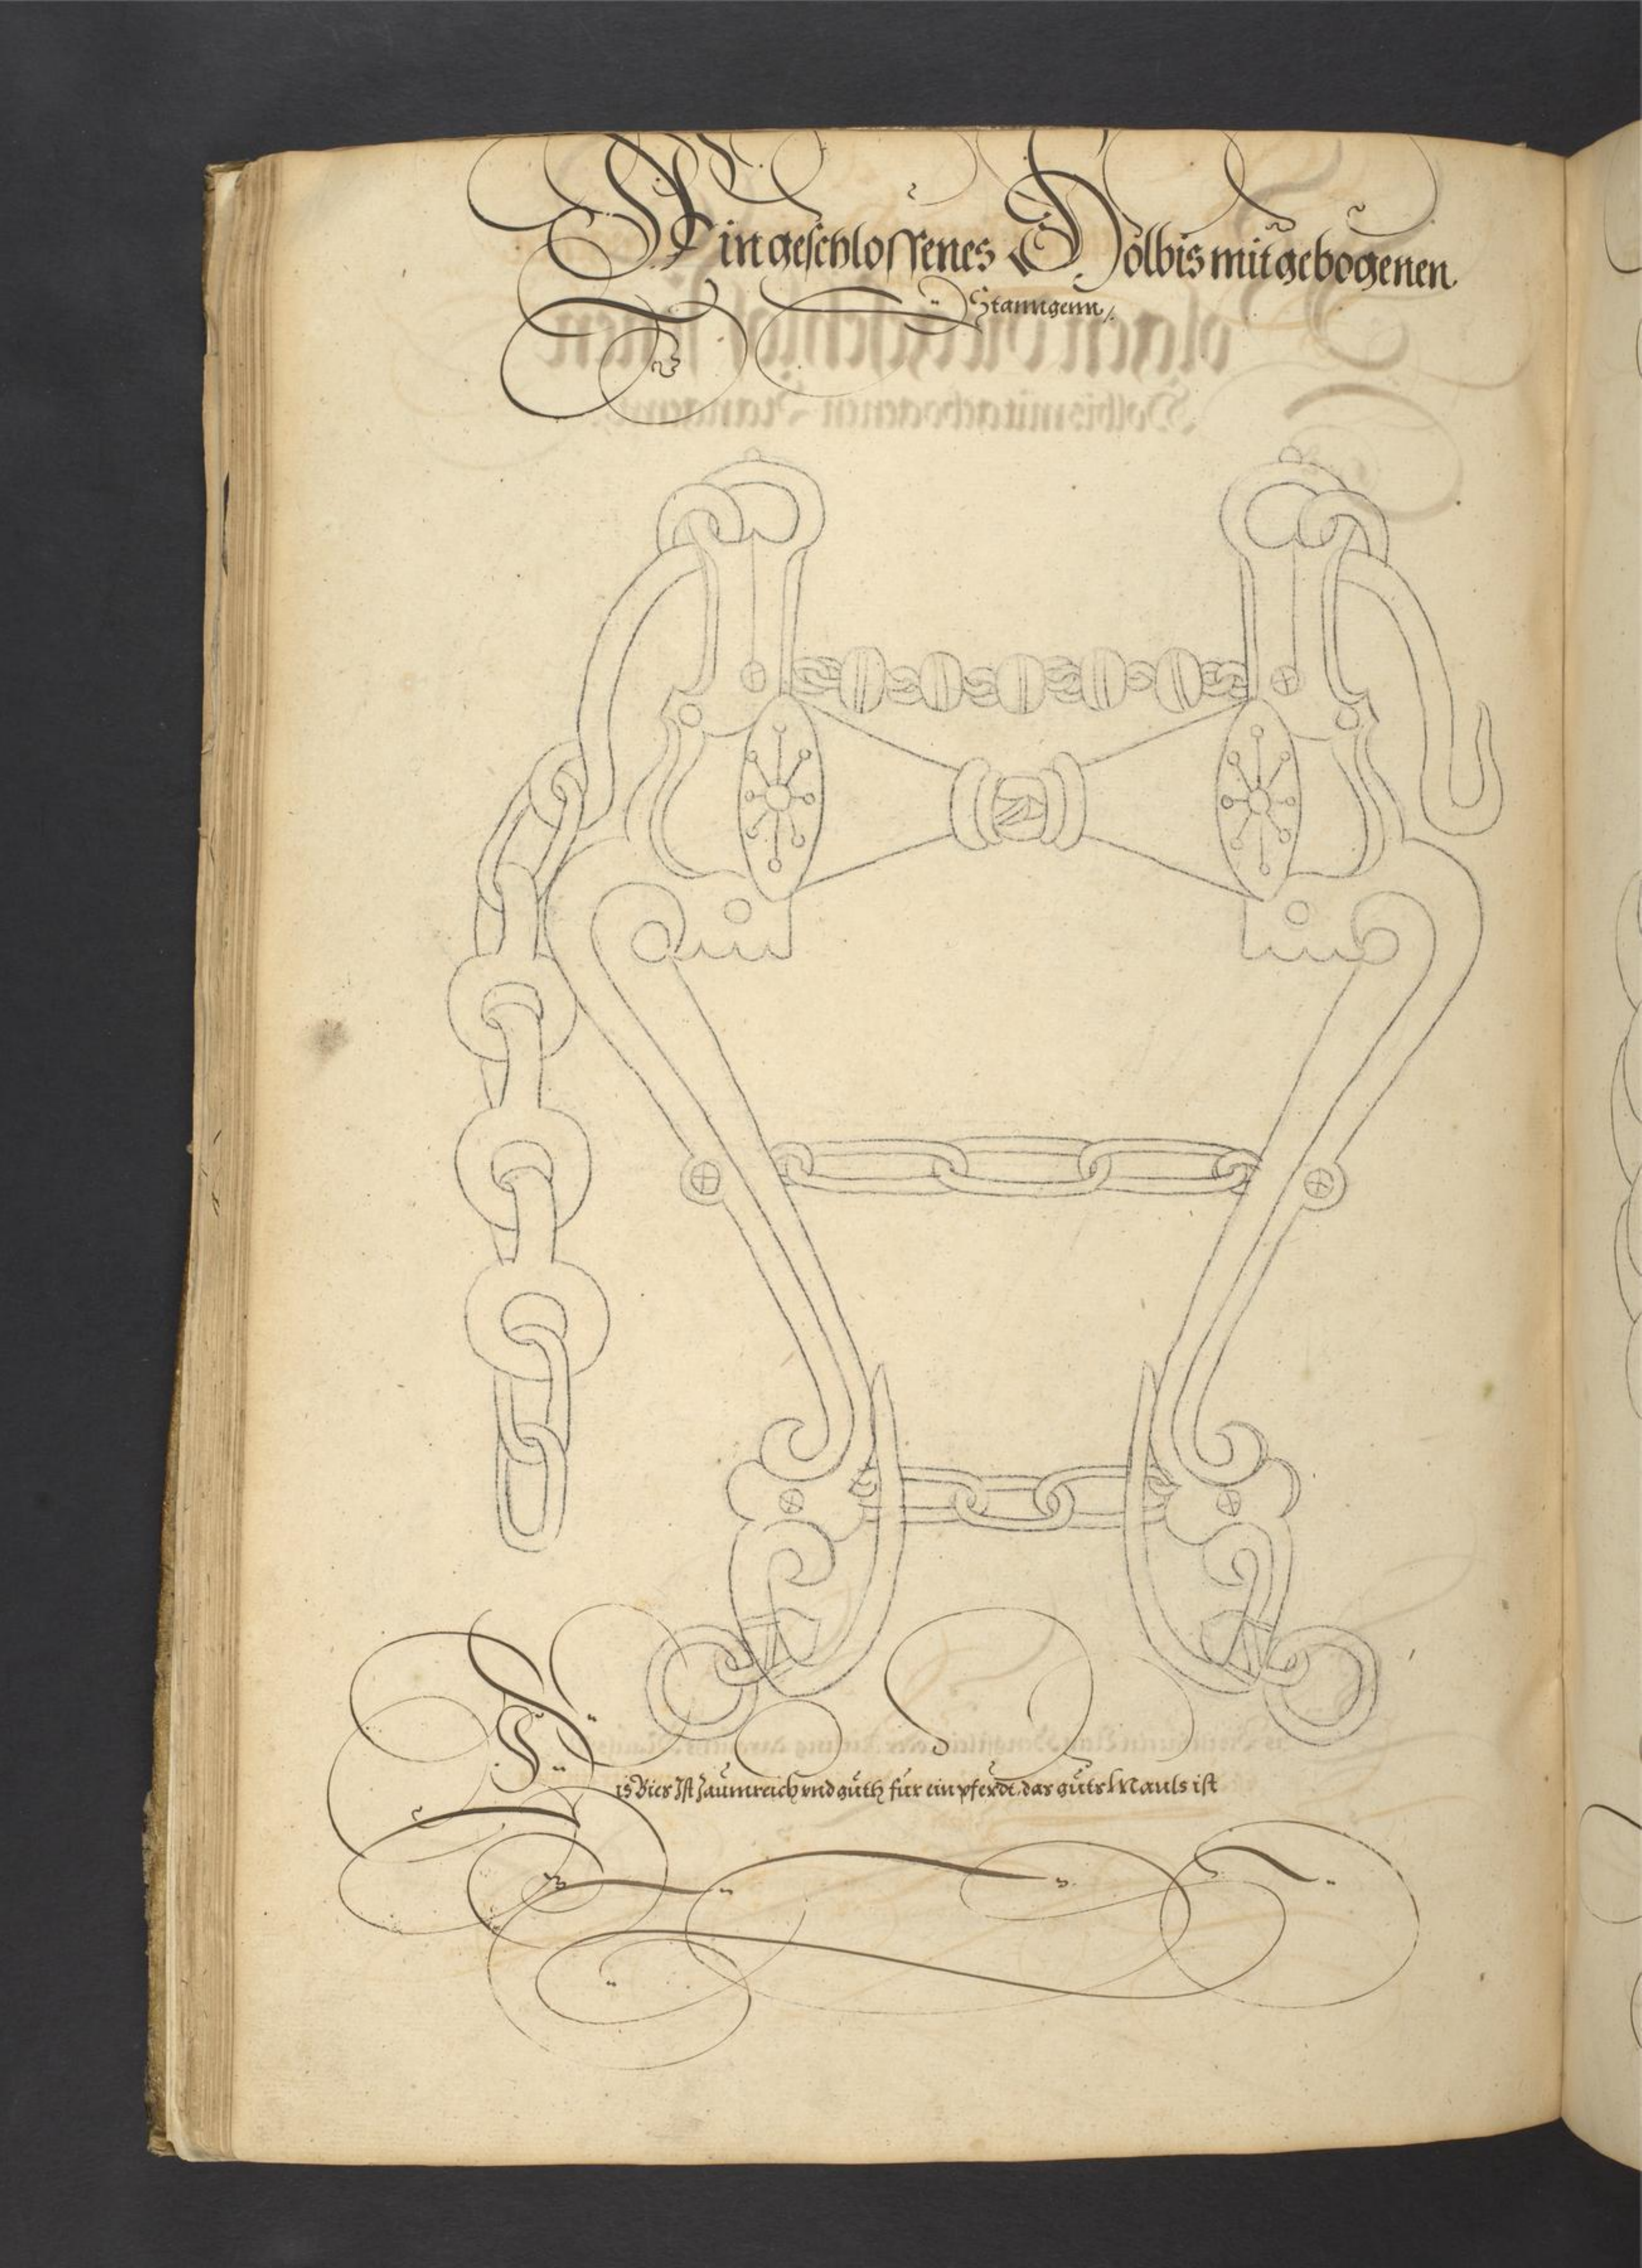 Ein geschlossenes Holbis mit gebogenen
Stanngenn
Dis Bies Ist Zaumreich vnd guth fur ein pferdt das guts Mauls ist